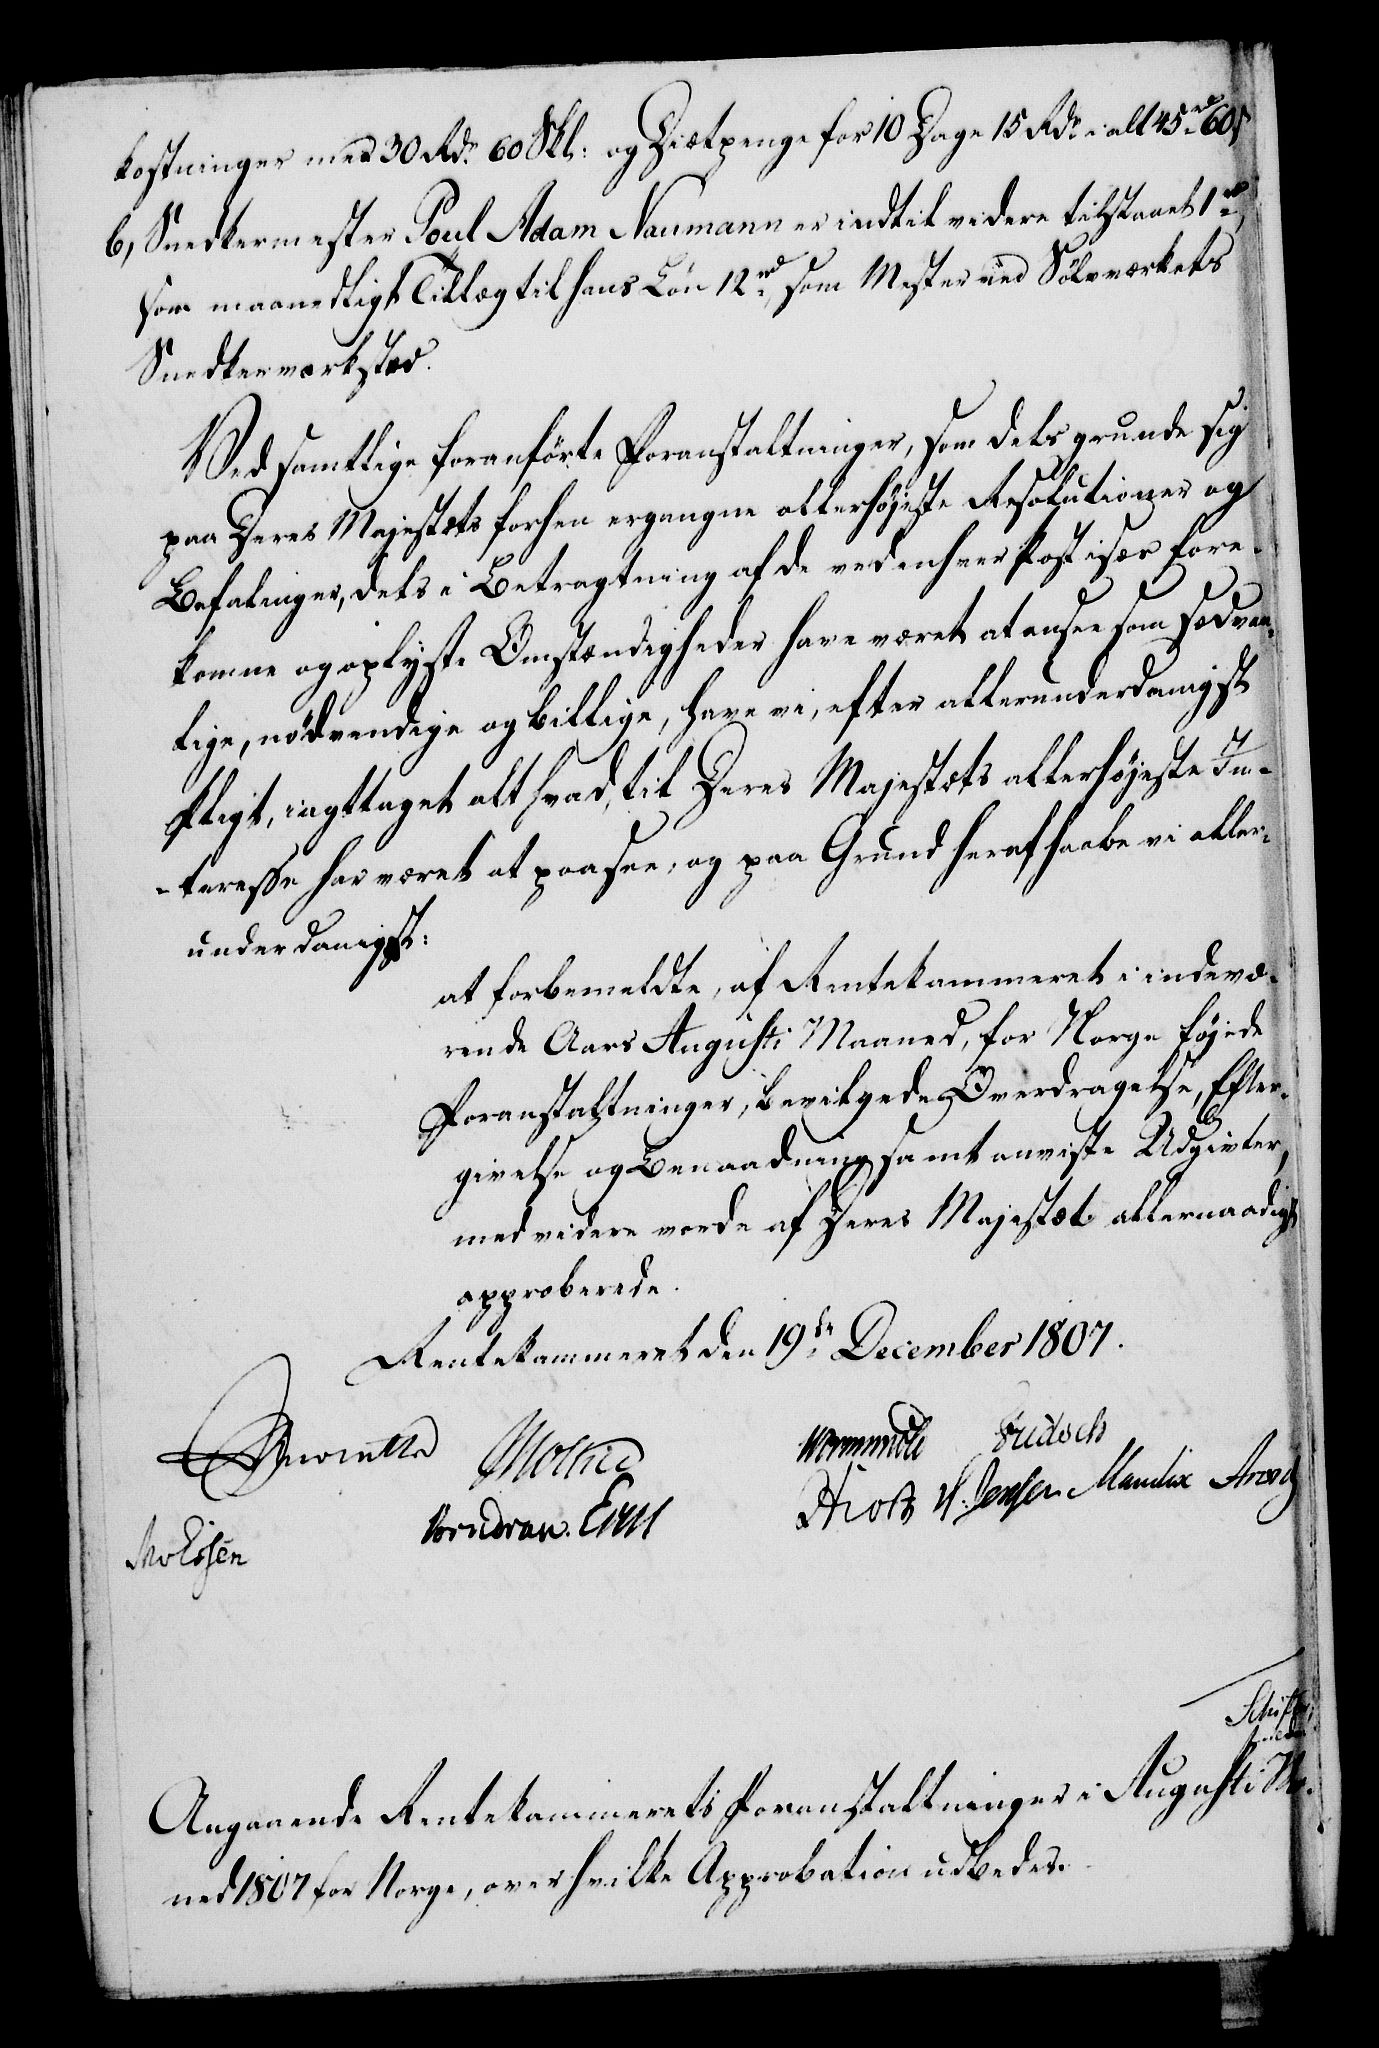 kostninger med 30 Rdr 60 Skl: og Diætpenge for 10 Dage 15 Rdr i alt 45 rd 60 s
6, Snedkermester Poul Adam Naumann er indtil videre tilstaaet 1 rd
som maanedligt Tillæg til hans Lön 12 rd, som Mester ved Sölvværkets
Snedkerværksted.
Ved samtlige foranförte Foranstaltninger, som dels grunde sig
paa Deres Majestæts forhen ergangne allerhöjeste Resolutioner og
Befalinger, dels i Betragtning af de ved enhver Post især fore-
komne og oplyste Omstændigheder have været at ansee som sædvan-
lige, nödvendige og billige, have vi, efter allerunderdanigst
Pligt, iagttaget alt hvad, til Deres Majestæts allerhöjeste In-
-teresse har været at paasee; og paa Grund heraf haabe vi aller-
underdanigst:
at forbemeldte, af Rentekammeret i indevæ-
rende Aars Augusti Maaned, for Norge föjede
Foranstaltninger, bevilgede Overdragelse, Efter-
givelse og Benaadning samt anviste Udgivter,
med videre vorde af Deres Majestæt allernaadigst
approberede.
Rentekammeret den 19de December 1807.
Wormskiold
Hiort H. Jensen Mandix
Vendran.
Angaaende Rentekammerets Foranstaltninger i Augusti Ma-
ned 1807 for Norge, over hvilke Approbation udbedes.